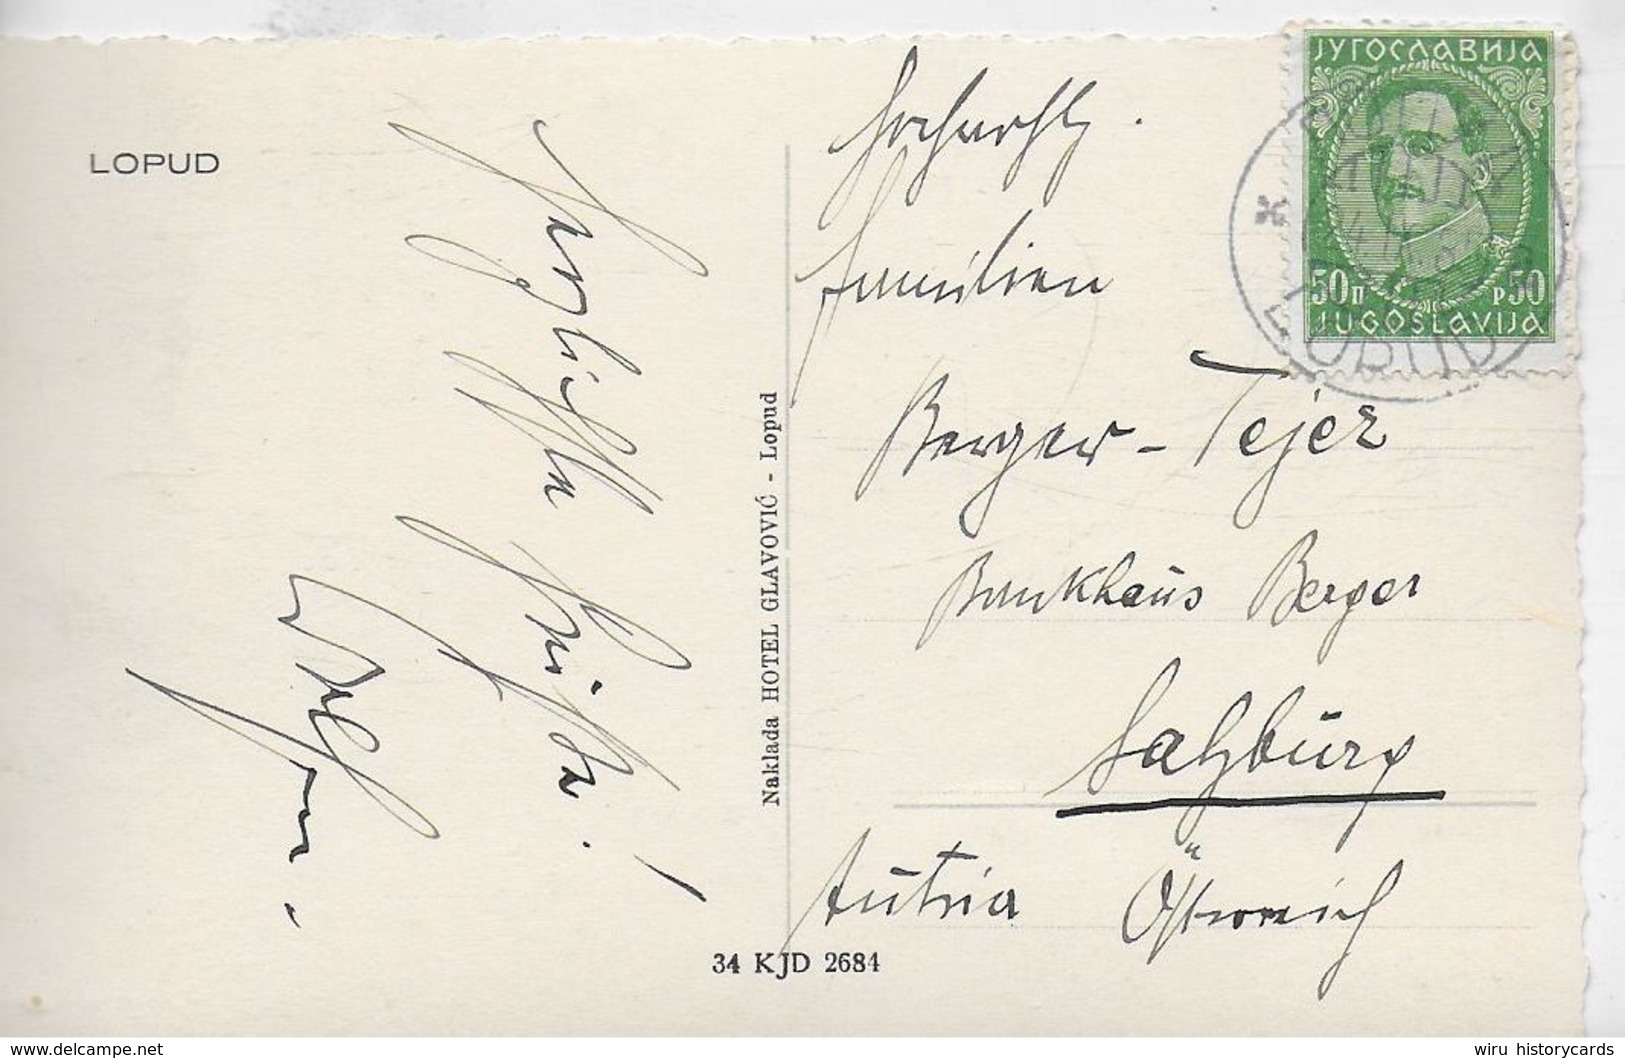 LOPUD
Herzlichste
Grüße!
Naklada HOTEL GLAVOVIĆ - Lopud
34 KJD 2684
ЈУГОСЛАВИЈА
50П P50
JUGOSLAVIJA
LOPUD
Familien
Berger - Tejer
Bankhaus Berger
Salzburg
Autria Österreich
delcampe.net
wiru historycards